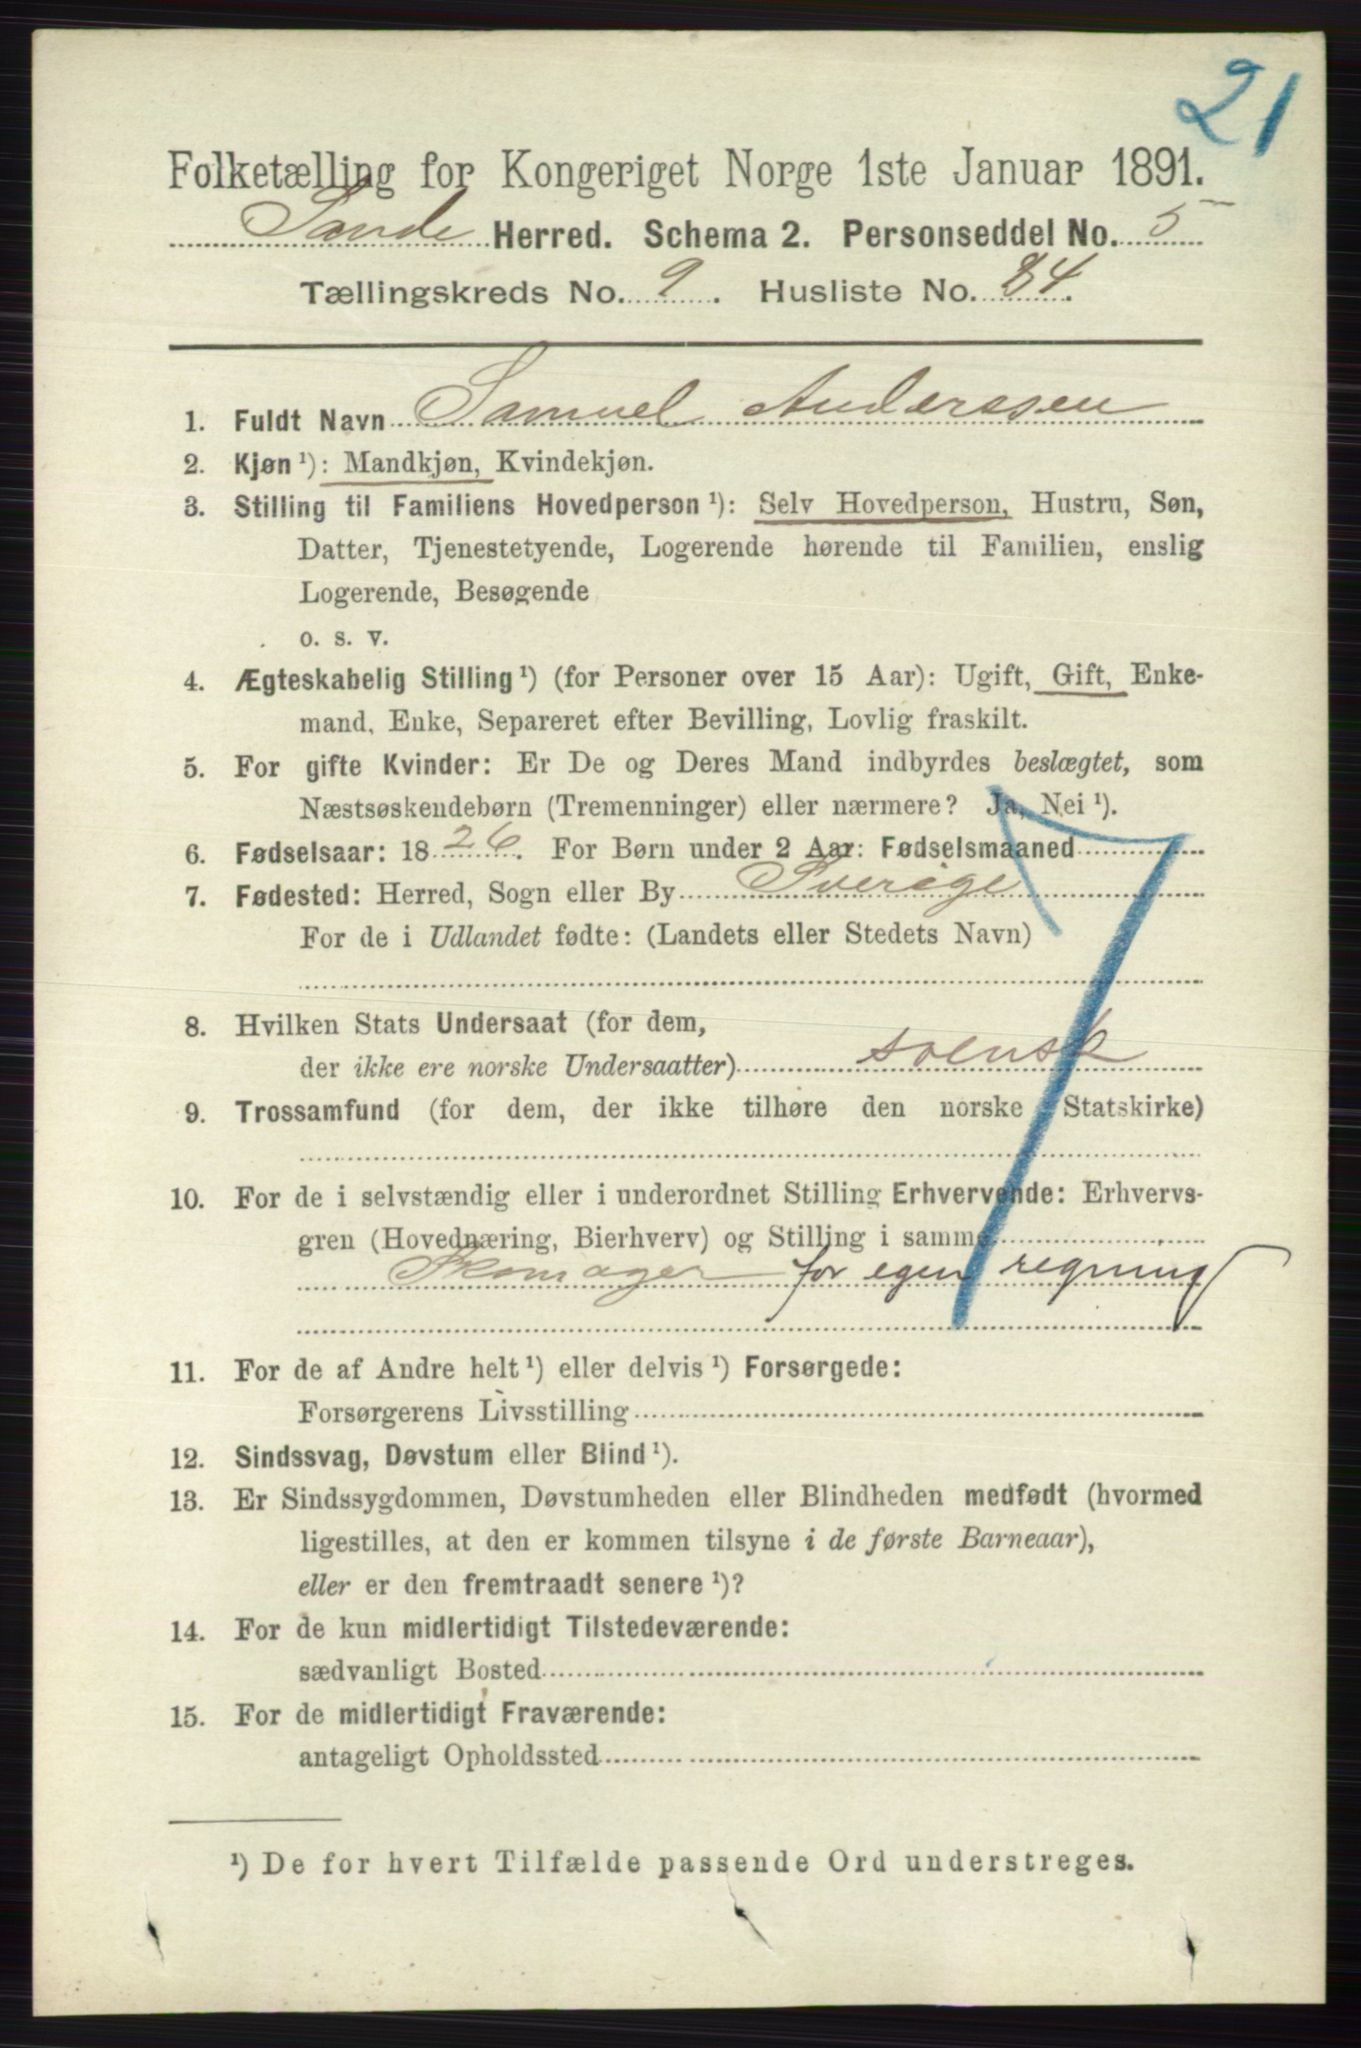 21
Folketælling for Kongeriget Norge 1ste Januar 1891.
Sande Herred. Schema 2. Personseddel No. 5
Tællingskreds No. 9. Husliste No. 84.
1. Fuldt Navn Samuel Anderssen
2. Kjøn ¹): Mandkjøn, Kvindekjøn.
3. Stilling til Familiens Hovedperson ¹): Selv Hovedperson, Hustru, Søn,
Datter, Tjenestetyende, Logerende hørende til Familien, enslig
Logerende, Besøgende
o. s. v.
4. Ægteskabelig Stilling ¹) (for Personer over 15 Aar): Ugift, Gift, Enke-
mand, Enke, Separeret efter Bevilling, Lovlig fraskilt.
5. For gifte Kvinder: Er De og Deres Mand indbyrdes beslægtet, som
Næstsøskendebørn (Tremenninger) eller nærmere? Ja, Nei ¹).
6. Fødselsaar: 1826. For Børn under 2 Aar: Fødselsmaaned
7. Fødested: Herred, Sogn eller By Sverige
For de i Udlandet fødte: (Landets eller Stedets Navn)
8. Hvilken Stats Undersaat (for dem,
der ikke ere norske Undersaatter) svensk
9. Trossamfund (for dem, der ikke tilhøre den norske Statskirke)
10. For de i selvstændig eller i underordnet Stilling Erhvervende: Erhvervs-
gren (Hovednæring, Bierhverv) og Stilling i samme
Skomager for egen regning
11. For de af Andre helt ¹) eller delvis ¹) Forsørgede:
Forsørgerens Livsstilling
12. Sindssvag, Døvstum eller Blind ¹).
13. Er Sindssygdommen, Døvstumheden eller Blindheden medfødt (hvormed
ligestilles, at den er kommen tilsyne i de første Barneaar),
eller er den fremtraadt senere ¹)?
14. For de kun midlertidigt Tilstedeværende:
sædvanligt Bosted
15. For de midlertidigt Fraværende:
antageligt Opholdssted
¹) De for hvert Tilfælde passende Ord understreges.